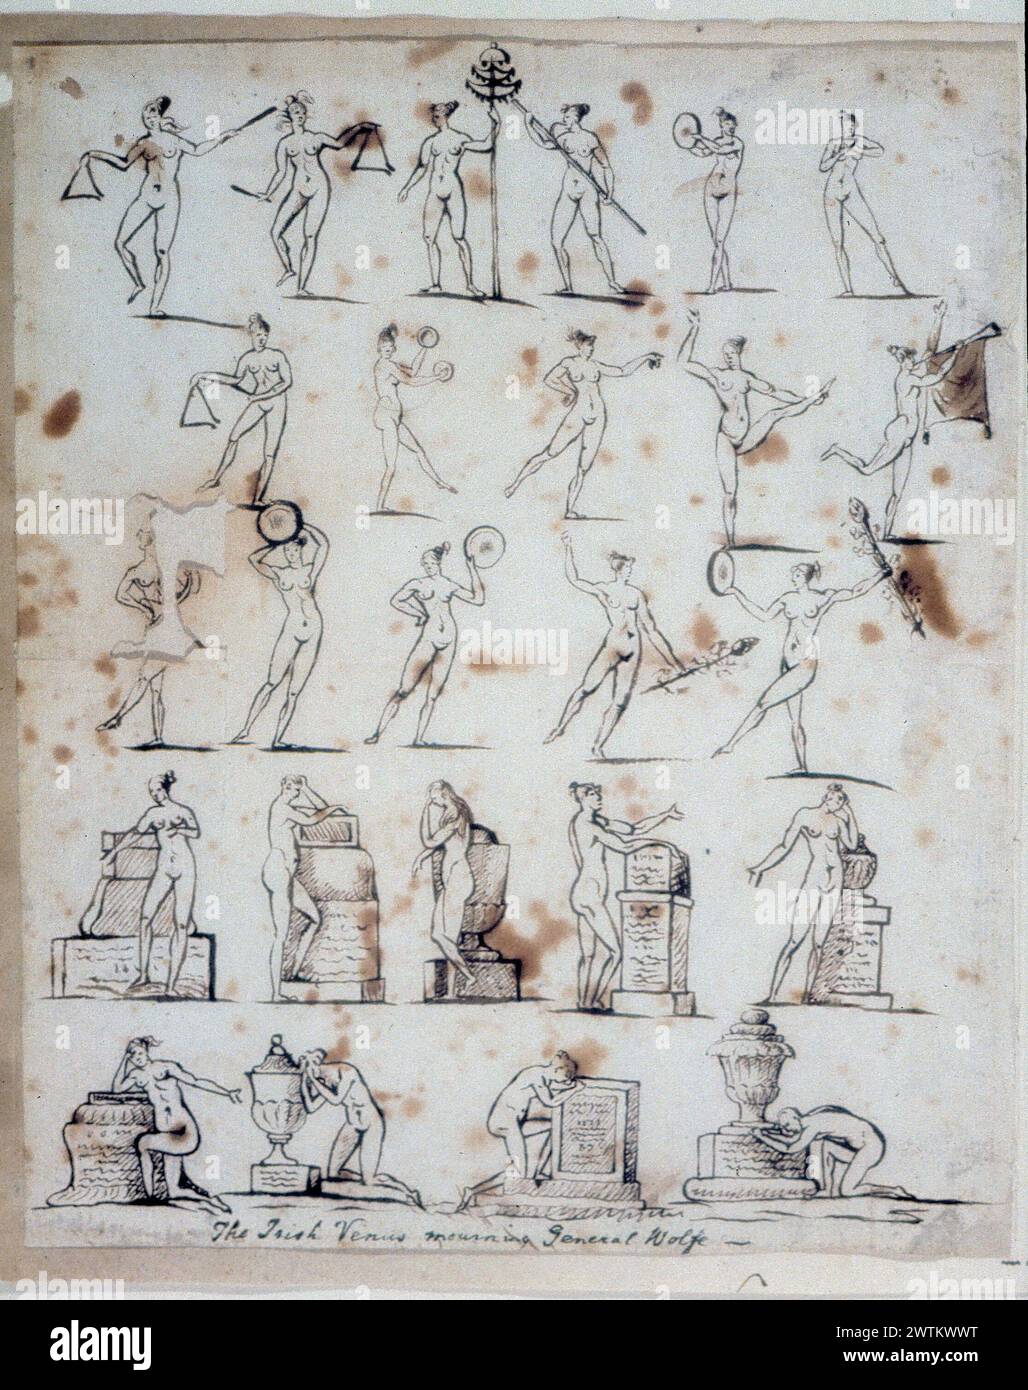 The Irish Venus mourning General Wolfe —
alamy
Image ID: 2WTKWWT
www.alamy.com